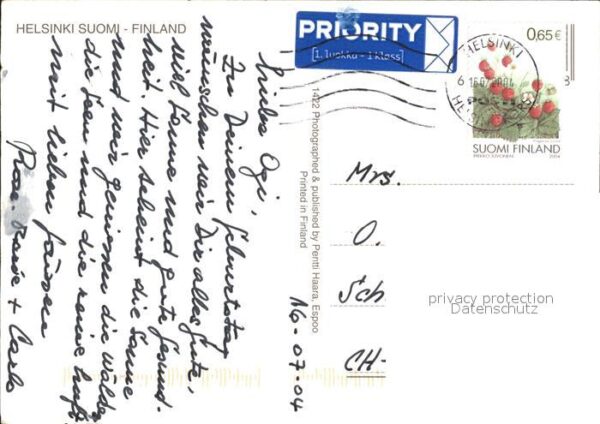 HELSINKI SUOMI - FINLAND
PRIORITY
1. luokka - 1 klass
HELSINKI
0,65€
SUOMI FINLAND
2004
Zu Deinem Geburtstag
wünschen wir Dir alles Gute,
viel Sonne und gute Gesund-
heit. Hier scheint die Sonne
und wir geniessen die Wälder
die Seen und die reine Luft.
mit lieben Grüssen
+ Carlo
16-07-04
1422 Photographed & published by Pentti Haara, Espoo
Printed in Finland
Mrs.
O.
Sch
CH-
privacy protection
Datenschutz